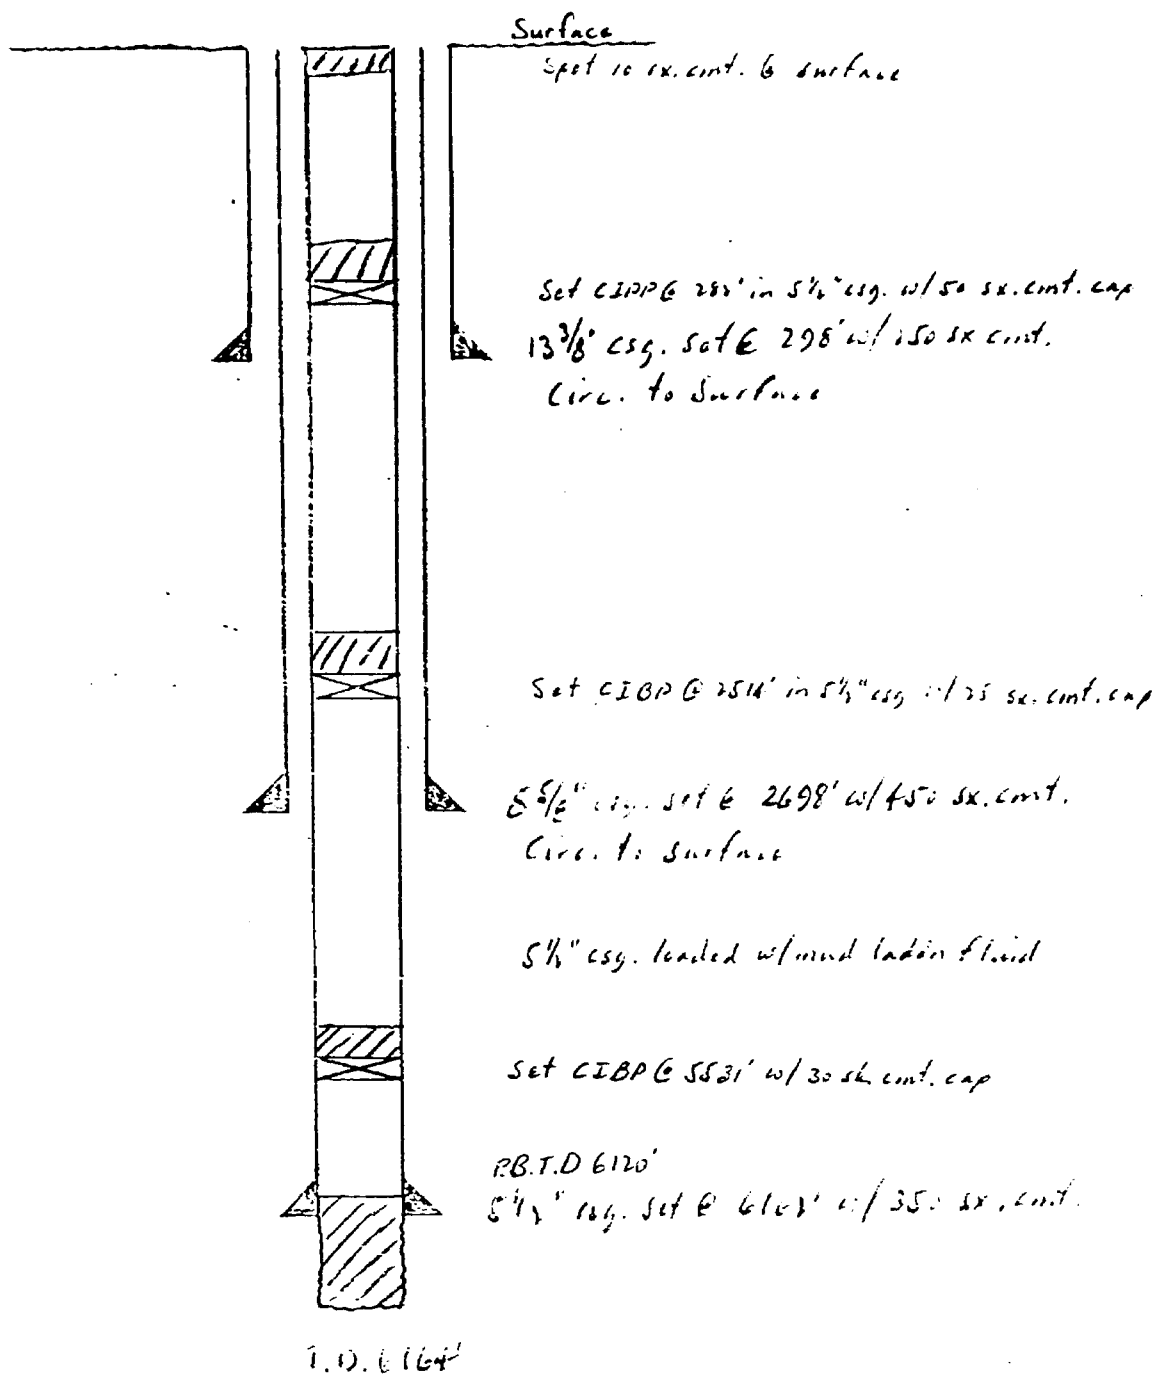 Surface
Spot 10 sx. cmt. @ surface
Set CIBP @ 282' in 5½" csg. w/ 50 sx. cmt. cap
13 3/8" csg. set @ 298' w/ sx cmt.
Circ. to Surface
Set CIBP @ in 5½" csg w/ 25 sx. cmt. cap
8 5/8" csg. set @ 2698' w/ 450 sx. cmt.
Circ. to surface
5½" csg. loaded w/ mud laden fluid
Set CIBP @ 5531' w/ 30 sk cmt. cap
P.B.T.D 6120'
5½" csg. set @ w/ 350 sx. cmt.
T.D. 6164'